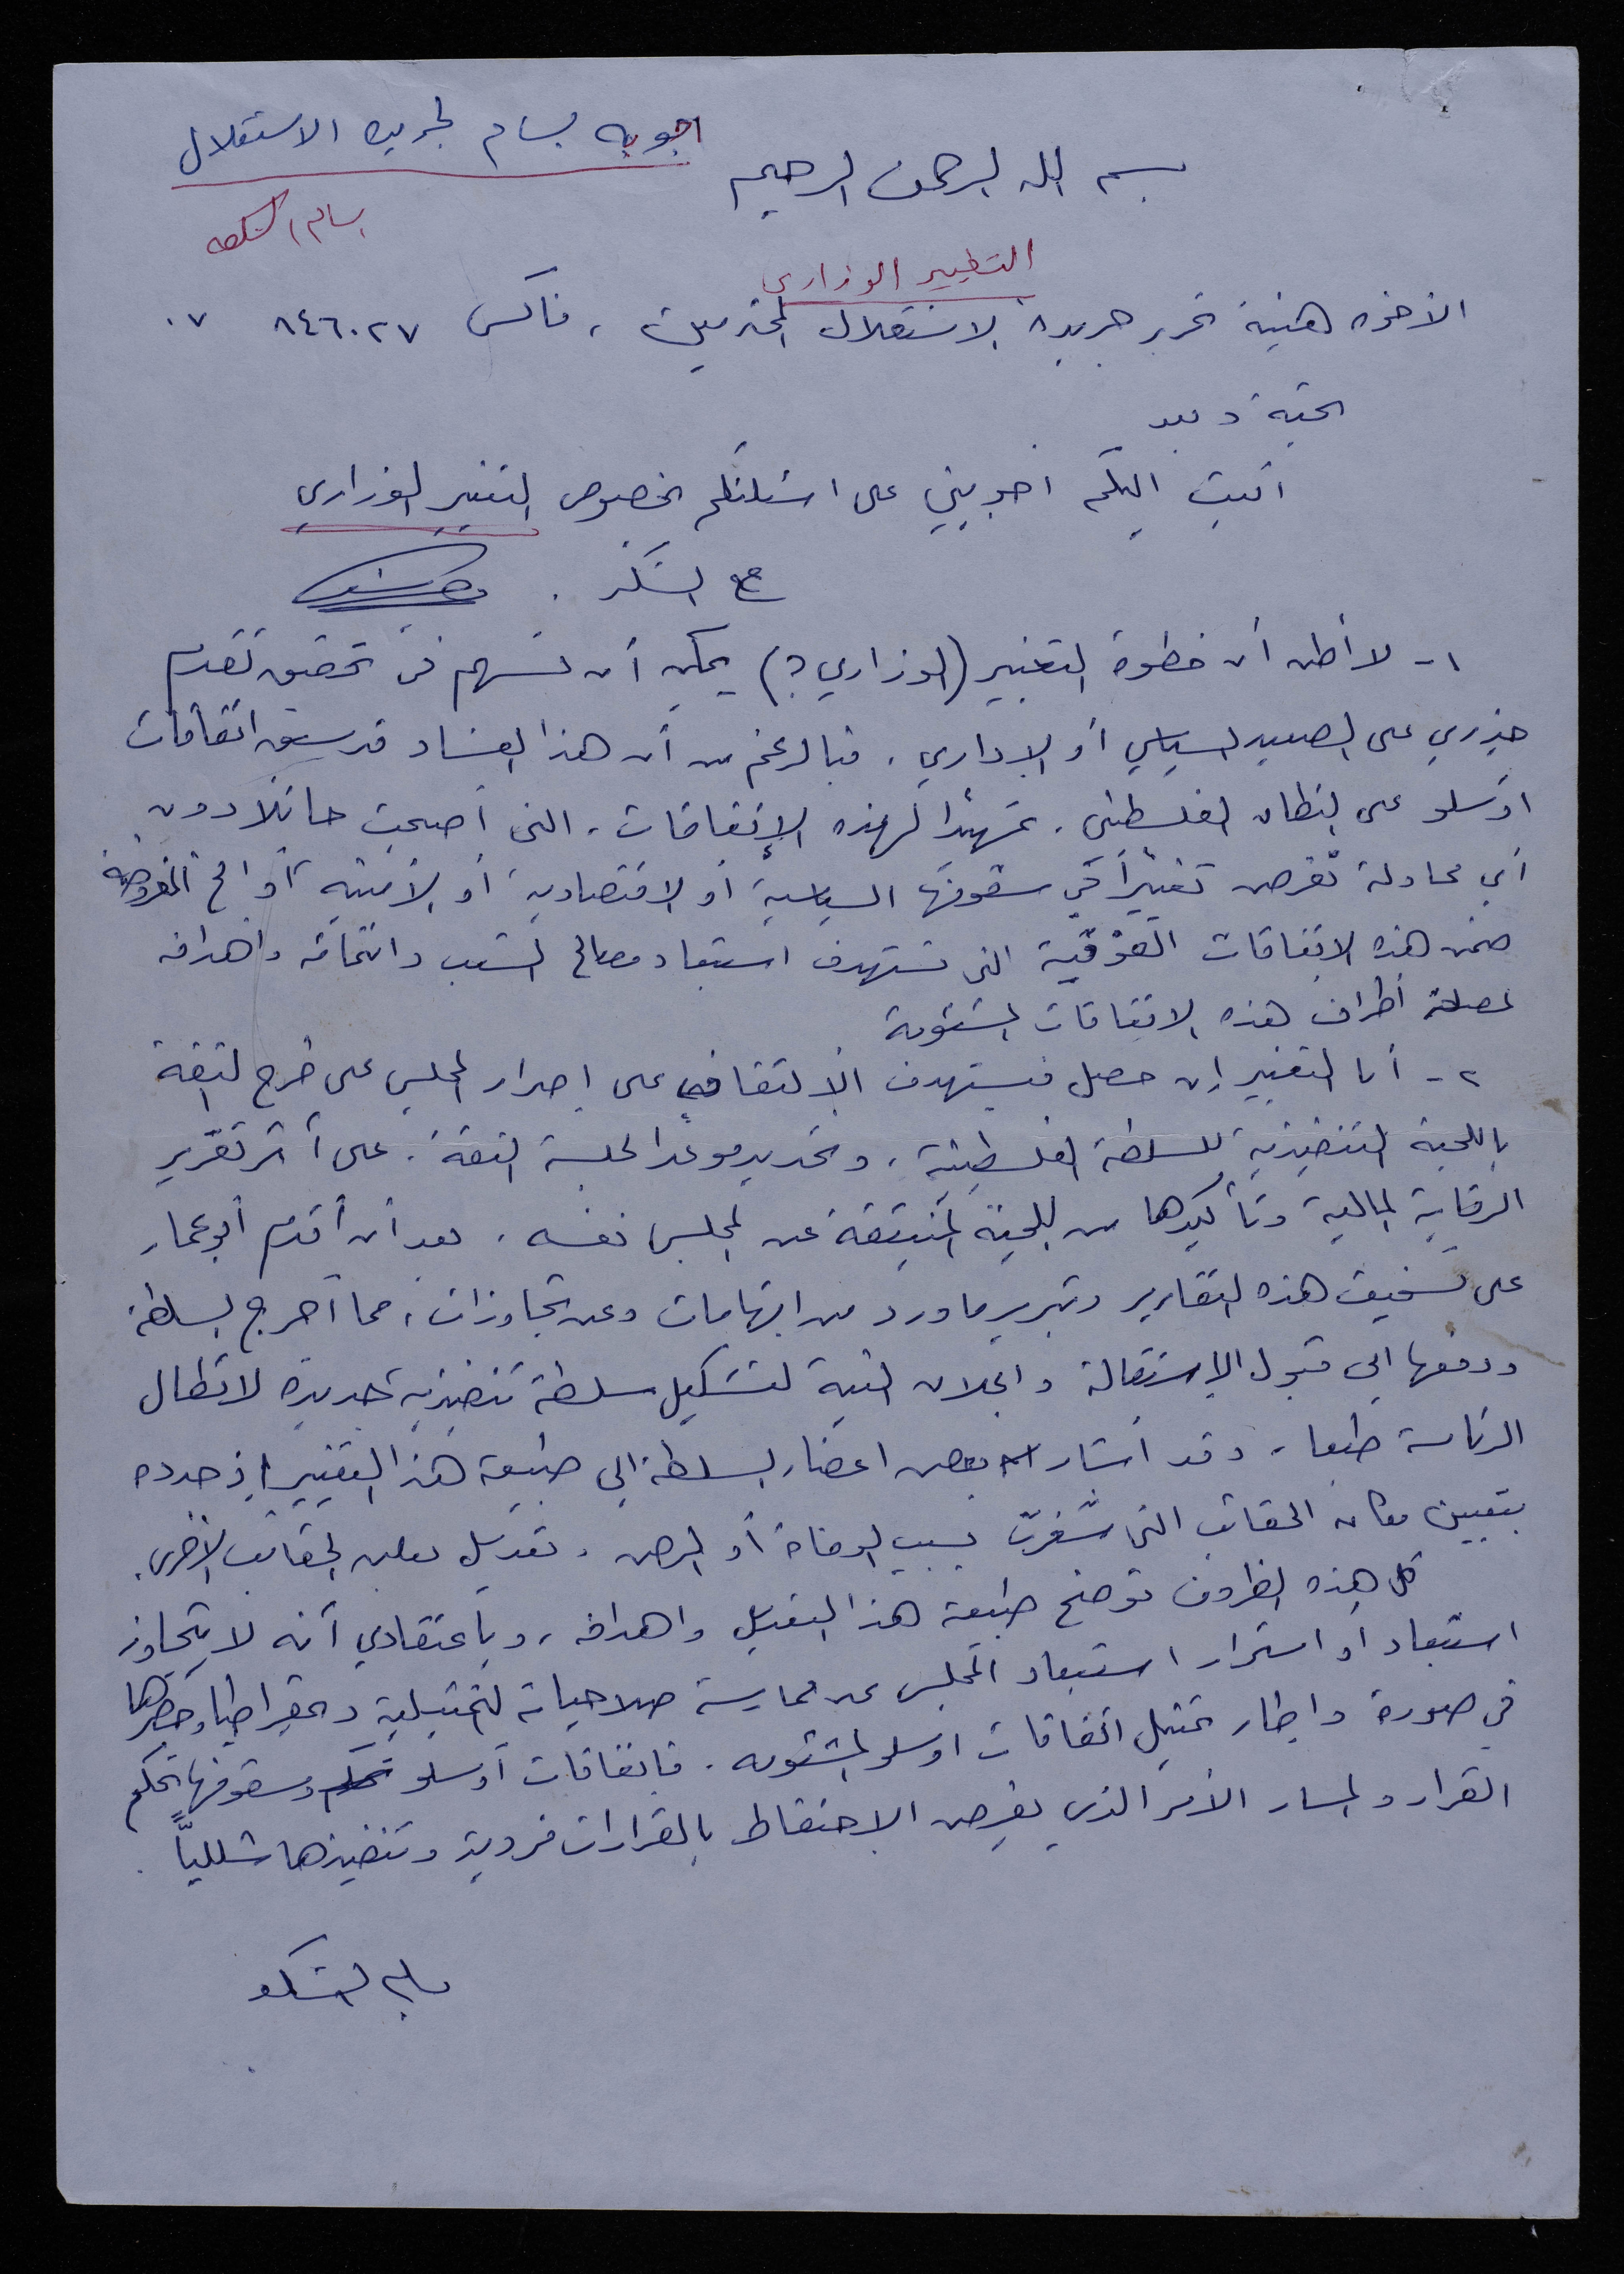 اجوبه بسام لجريده الاستقلال
بسم الله الرحمن الرحيم
بسام الشكعه
التغيير الوزاري
الاخوه هيئة تحرير جريدة الاستقلال المحترمين ، فاكس ٨٤٦٠٢٧ ٠٧
تحية وبعد
اكتب اليكم اجوبتي على اسئلتكم بخصوص التغيير الوزاري
مع الشكر .
١- لا أظن أن خطوة التغيير (الوزاري؟) يمكن أن تسهم في تحقيق تقدم
جذري على الصعيد السياسي أو الإداري . فبالرغم من أن هذا الفساد قد سبق اتفاقات
اوسلو على النطاق الفلسطيني . تمهيداً لهذه الإتفاقات . التي أصبحت حائلا دون
أي محاولة تفرض تغييراً في سقوفها السياسية أو الاقتصادية أو الأمنية المفروضة
ضمن هذه الاتفاقات الفوقية التي تستهدف استبعاد مصالح الشعب وانتمائه واهدافه
لمصلحة أطراف هذه الاتفاقات المشئومة
٢- أما التغيير إن حصل فيستهدف الالتفاف على إصرار المجلس على طرح الثقة
باللجنة التنفيذية للسلطة الفلسطينية ، وتحديد موعد الجلسة الثقة . على أثر تقرير
الرقابة المالية وتأكيدها من اللجنة المنبثقة عن المجلس نفسه . بعد أن أقدم أبو عمار
على تسخيف هذه التقارير وتبرير ما ورد من اتهامات وعن تجاوزات ، مما أحرج السلطة
ودفعها إلى قبول الإستقالة واعلان النية لتشكيل سلطة تنفيذية جديدة لا تطال
الرئاسة طبعا . وقد أشار بعض اعضاء السلطة إلى طبيعة هذا التغيير إذ حدده
بتعيين مكان الحقائب التي شغرت بسبب الوفاة أو المرض . وتعديل بعض الحقائب الأخرى .
كل هذه الظروف توضح طبيعة هذا التعديل واهدافه ، وباعتقادي أنه لا يتجاوز
استبعاد أو استمرار استبعاد المجلس عن ممارسة صلاحياته التمثيلية ديمقراطيا وحصرها
في صورة واطار تمثيل اتفاقات اوسلو المشئومه . فاتفاقات أوسلو وسقوفها تحكم
القرار والمسار الأمر الذي يفرض الاحتفاظ بالقرارات فردية وتنفيذها شللياً .
بسام الشكعه